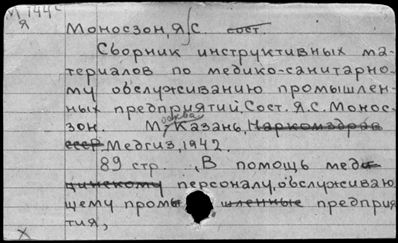 М 144с
Я
Моносзон, Я.С. сост.
Сборник инструктивных ма-
териалов по медико-санитарно-
му обслуживанию промышлен-
ных предприятий. Сост. Я.С. Монос-
зон. Москва, Казань, Наркомздрав
СССР Медгиз, 1942.
89 стр. „В помощь меди-
цинскому персоналу, обслуживаю-
щему промышленные предприя-
тия,
X